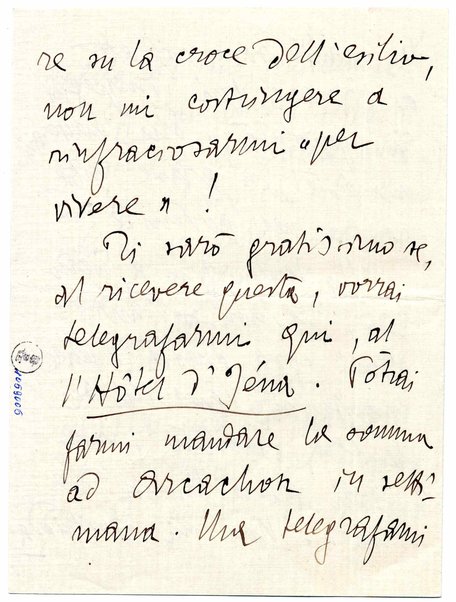 re su la croce dell'esilio,
non mi costringere a
rinfraciosarmi «per
vivere» !
Ti sarò gratissimo se,
al ricevere questa, vorrai
telegrafarmi qui, al
l'Hôtel d'Jéna. Potrai
farmi mandare la somma
ad Arcachon in setti=
mana. Ma telegrafami